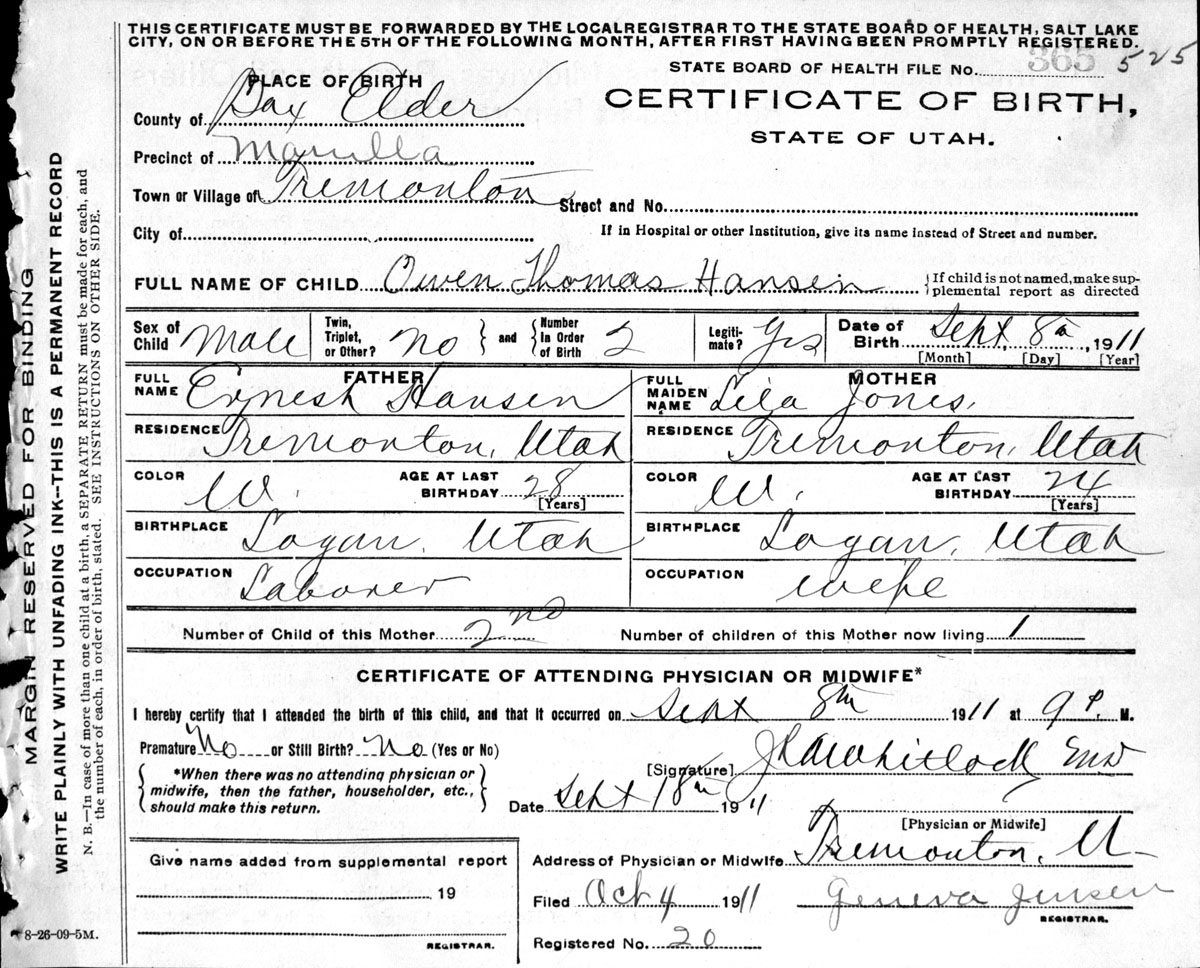 THIS CERTIFICATE MUST BE FORWARDED BY THE LOCAL REGISTRAR TO THE STATE BOARD OF HEALTH, SALT LAKE
CITY, ON OR BEFORE THE 5TH OF THE FOLLOWING MONTH, AFTER FIRST HAVING BEEN PROMPTLY REGISTERED.
STATE BOARD OF HEALTH FILE No. 365 525
PLACE OF BIRTH
CERTIFICATE OF BIRTH,
STATE OF UTAH.
County of Box Elder
Precinct of Manilla
Town or Village of Tremonton
Street and No.
City of
If in Hospital or other Institution, give its name instead of Street and number.
FULL NAME OF CHILD Owen Thomas Hansen {If child is not named, make supplemental report as directed
Sex of Child Male Twin, Triplet, or Other? No } and { Number In Order of Birth 2 Legitimate? Yes Date of Birth Sept 8th, 1911
[Month] [Day] [Year]
FATHER MOTHER
FULL NAME Ernest Hansen FULL MAIDEN NAME Lila Jones,
RESIDENCE Tremonton, Utah RESIDENCE Tremonton, Utah
COLOR W. AGE AT LAST BIRTHDAY 28 [Years] COLOR W. AGE AT LAST BIRTHDAY 24 [Years]
BIRTHPLACE Logan, Utah BIRTHPLACE Logan, Utah
OCCUPATION Laborer OCCUPATION Wife
Number of Child of this Mother 2nd Number of children of this Mother now living 1
CERTIFICATE OF ATTENDING PHYSICIAN OR MIDWIFE*
I hereby certify that I attended the birth of this child, and that it occurred on Sept 8th 1911 at 9 P. M.
Premature No or Still Birth? No (Yes or No)
{ *When there was no attending physician or
midwife, then the father, householder, etc.,
should make this return. }
[Signature] Whitlock
Date Sept 18th 1911
[Physician or Midwife]
Address of Physician or Midwife Tremonton, U
Filed Oct 4 1911 Geneva Jensen
REGISTRAR.
Registered No. 20
Give name added from supplemental report
19
REGISTRAR.
8-26-09-5M.
MARGIN RESERVED FOR BINDING
WRITE PLAINLY WITH UNFADING INK--THIS IS A PERMANENT RECORD
N. B.—In case of more than one child at a birth, a SEPARATE RETURN must be made for each, and
the number of each, in order of birth, stated. SEE INSTRUCTIONS ON OTHER SIDE.